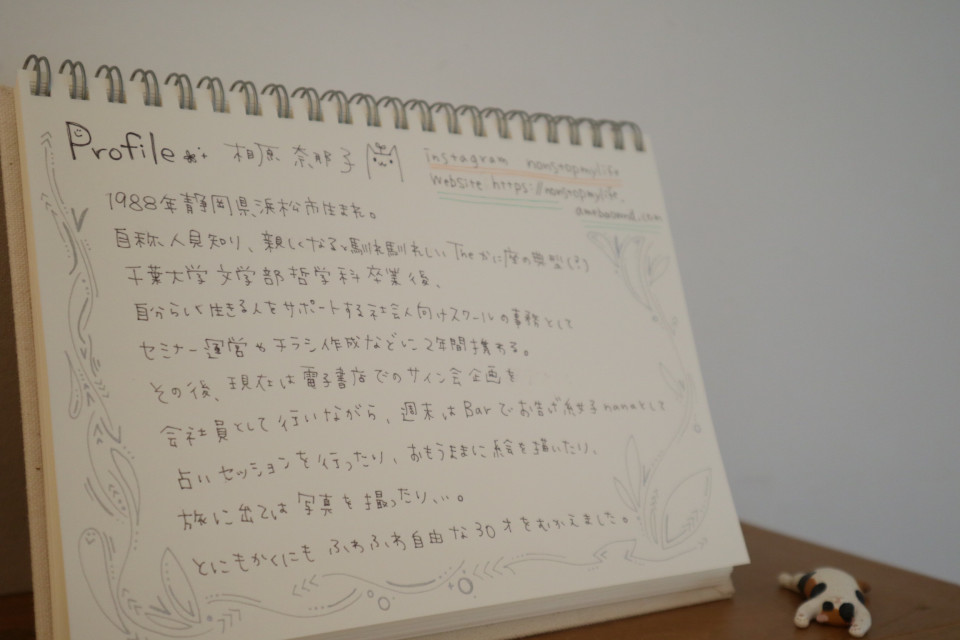 Profile 相原 奈那子
instagram nonstopmylife
Website https://nonstopmylife.
amebaownd.com
1988年静岡県浜松市生まれ。
自称人見知り、親しくなると馴れ馴れしい Theかに座の典型(?)
千葉大学 文学部哲学科卒業後、
自分らしく生きる人をサポートする社会人向けスクールの事務として
セミナー運営やチラシ作成などに2年間携わる。
その後、現在は電子書店でのサイン会企画を
会社員として行いながら、週末はBarでお告げ系女子nanaとして
占いセッションを行ったり、おもうままに絵を描いたり、
旅に出ては写真を撮ったり、、。
とにもかくにも ふわふわ自由な30才をむかえました。